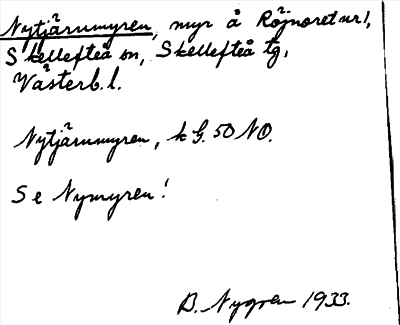 Nytjärnmyren, myr å Röjnoret nr 1,
Skellefteå sn, Skellefteå tg,
Västerb. l.
Nytjärnmyren, k G. 50 NO.
Se Nymyren!
B. Nygren 1933.